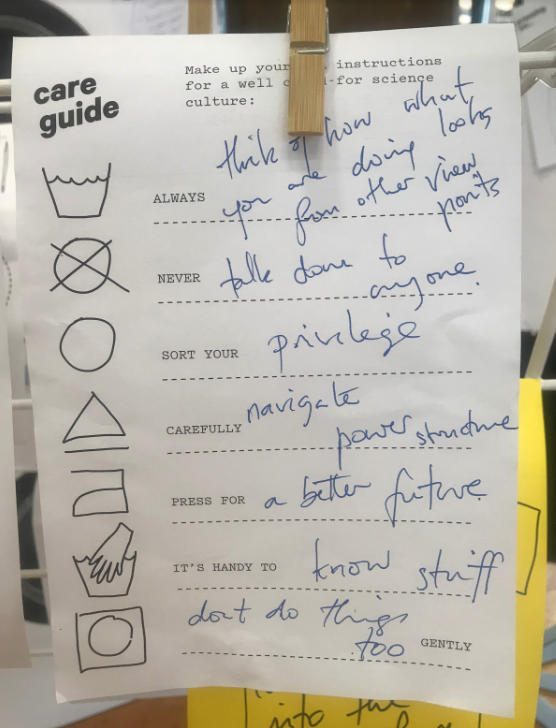 care
guide
Make up your instructions
for a well -for science
culture:
think of how what
you are doing looks
ALWAYS from other view
points
NEVER talk down to
anyone.
SORT YOUR privilege
navigate
CAREFULLY power structure
PRESS FOR a better future
IT'S HANDY TO know stuff
dont do things
too GENTLY
into the